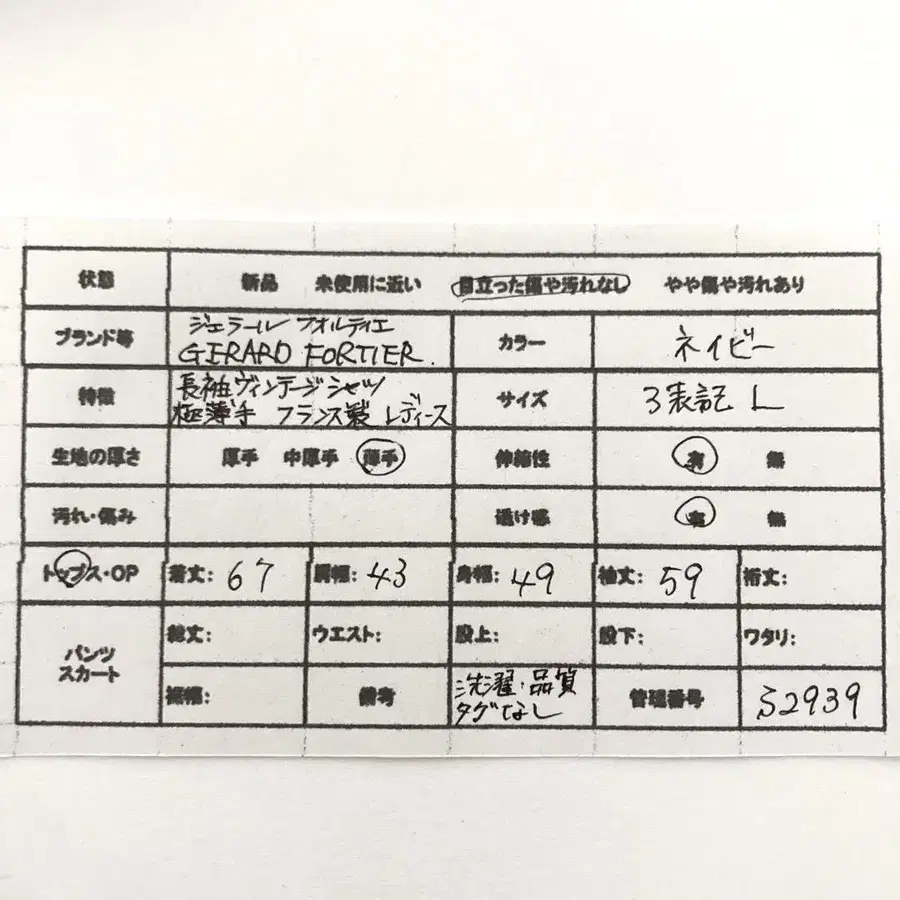 状態 新品 未使用に近い 目立った傷や汚れなし やや傷や汚れあり
ブランド等 ジェラール フォルティエ
GERARD FORTIER. カラー ネイビー
特徴 長袖ヴィンテージシャツ
極薄手 フランス製 レディース サイズ 3表記 L
生地の厚さ 厚手 中厚手 薄手 伸縮性 有 無
汚れ・傷み 透け感 有 無
トップス・OP 着丈: 67 肩幅: 43 身幅: 49 袖丈: 59 裄丈:
パンツ
スカート 総丈: ウエスト: 股上: 股下: ワタリ:
裾幅: 備考 洗濯・品質
タグなし 管理番号 S2939